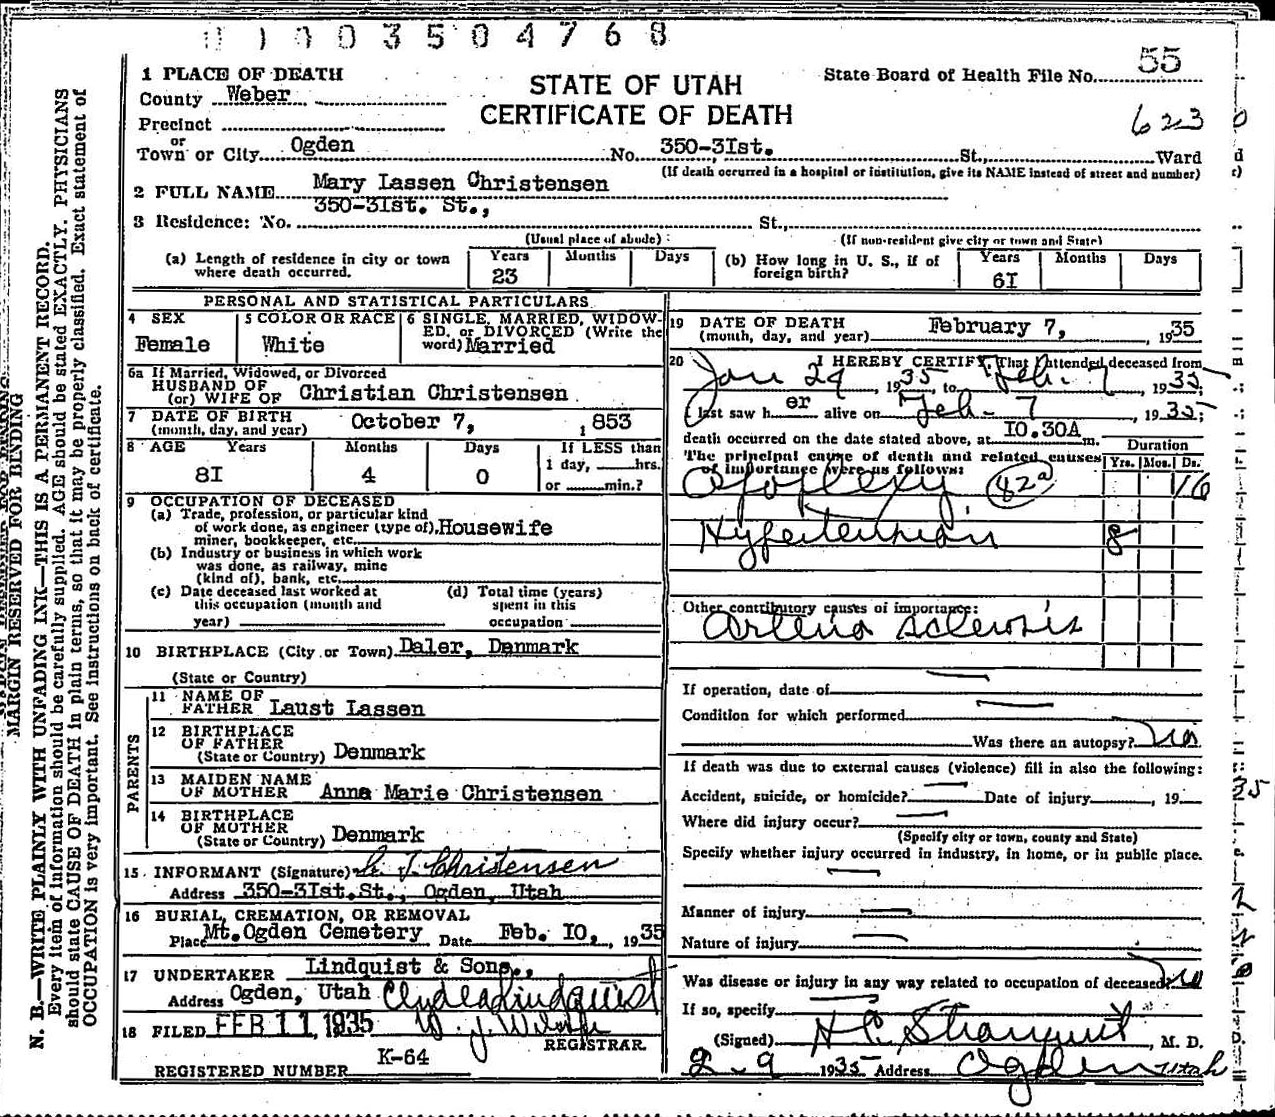 0 1 0 0 3 5 0 4 7 6 8
1 PLACE OF DEATH
County Weber
Precinct
or
Town or City Ogden No. 350-3Ist. St., Ward
(If death occurred in a hospital or institution, give its NAME instead of street and number)
STATE OF UTAH
CERTIFICATE OF DEATH
State Board of Health File No. 55
623
2 FULL NAME Mary Lassen Christensen
350-3Ist. St.,
3 Residence: No. St.,
(Usual place of abode) (If non-resident give city or town and State)
(a) Length of residence in city or town where death occurred. Years 23 Months Days
(b) How long in U. S., if of foreign birth? Years 6I Months Days
PERSONAL AND STATISTICAL PARTICULARS
4 SEX
Female
5 COLOR OR RACE
White
6 SINGLE, MARRIED, WIDOW-
ED, or DIVORCED (Write the
word) Married
6a If Married, Widowed, or Divorced
HUSBAND OF
(or) WIFE OF Christian Christensen
7 DATE OF BIRTH
(month, day, and year) October 7, 1853
8 AGE Years 8I Months 4 Days 0
If LESS than
1 day, hrs.
or min.?
9 OCCUPATION OF DECEASED
(a) Trade, profession, or particular kind
of work done, as engineer (type of), Housewife
miner, bookkeeper, etc.
(b) Industry or business in which work
was done, as railway, mine
(kind of), bank, etc.
(c) Date deceased last worked at
this occupation (month and
year)
(d) Total time (years)
spent in this
occupation
10 BIRTHPLACE (City or Town) Daler, Denmark
(State or Country)
PARENTS
11 NAME OF
FATHER Laust Lassen
12 BIRTHPLACE
OF FATHER
(State or Country) Denmark
13 MAIDEN NAME
OF MOTHER Anna Marie Christensen
14 BIRTHPLACE
OF MOTHER
(State or Country) Denmark
15 INFORMANT (Signature) J. Christensen
Address 350-3Ist.St., Ogden, Utah
16 BURIAL, CREMATION, OR REMOVAL
Place Mt.Ogden Cemetery Date Feb. IO, , 1935
17 UNDERTAKER Lindquist & Sons.,
Address Ogden, Utah Clyde Lindquist
18 FILED FEB 11, 1935
REGISTRAR.
K-64
REGISTERED NUMBER
19 DATE OF DEATH
(month, day, and year) February 7, , 1935
20 I HEREBY CERTIFY, That I attended deceased from
Jan 29, 1935 to Feb. 7, 1935,
I last saw her alive on Feb - 7, 1935;
death occurred on the date stated above, at IO.30A m.
The principal cause of death and related causes
of importance were as follows:
Duration
Yrs. Mos. Ds.
Apoplexy 82a 16
Hypertension 8
Other contributory causes of importance:
Arterio sclerosis
If operation, date of
Condition for which performed
Was there an autopsy? no
If death was due to external causes (violence) fill in also the following:
Accident, suicide, or homicide? Date of injury , 19
Where did injury occur?
(Specify city or town, county and State)
Specify whether injury occurred in industry, in home, or in public place.
Manner of injury
Nature of injury
Was disease or injury in any way related to occupation of deceased? no
If so, specify
(Signed) H C Stranquist, M. D.
2-9 1935 Address Ogden Utah
MARGIN RESERVED FOR BINDING
N. B.—WRITE PLAINLY WITH UNFADING INK—THIS IS A PERMANENT RECORD.
Every item of information should be carefully supplied. AGE should be stated EXACTLY. PHYSICIANS
should state CAUSE OF DEATH in plain terms, so that it may be properly classified. Exact statement of
OCCUPATION is very important. See instructions on back of certificate.